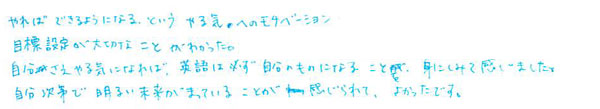 やればできるようになる、という やる気。へのモチベーション
目標設定が大切な ことがわかった。
自分さえやる気になれば、英語は必ず自分のものになることが、身にしみて感じました。
自分次第で 明るい未来がまっていることが感じられて、よかったです。